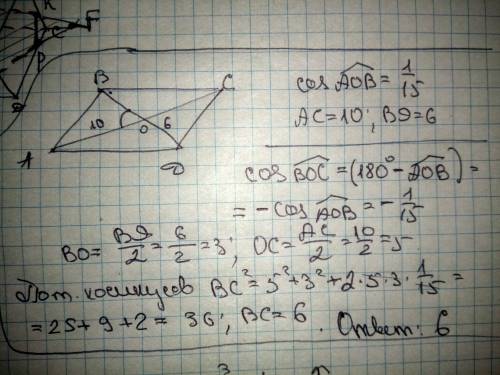 K
F
C
P
B
C
10
O
6
A
D
cos AOB = 1/15
AC=10; ВД=6
cos BOC = (180° - AOB) =
= -cos AOB = - 1/15
BO= ВД/2 = 6/2 = 3; OC= AC/2 = 10/2 = 5
По т. косинусов BC² = 5² + 3² + 2·5·3· 1/15 =
= 25+9+2 = 36; BC=6. Ответ: 6